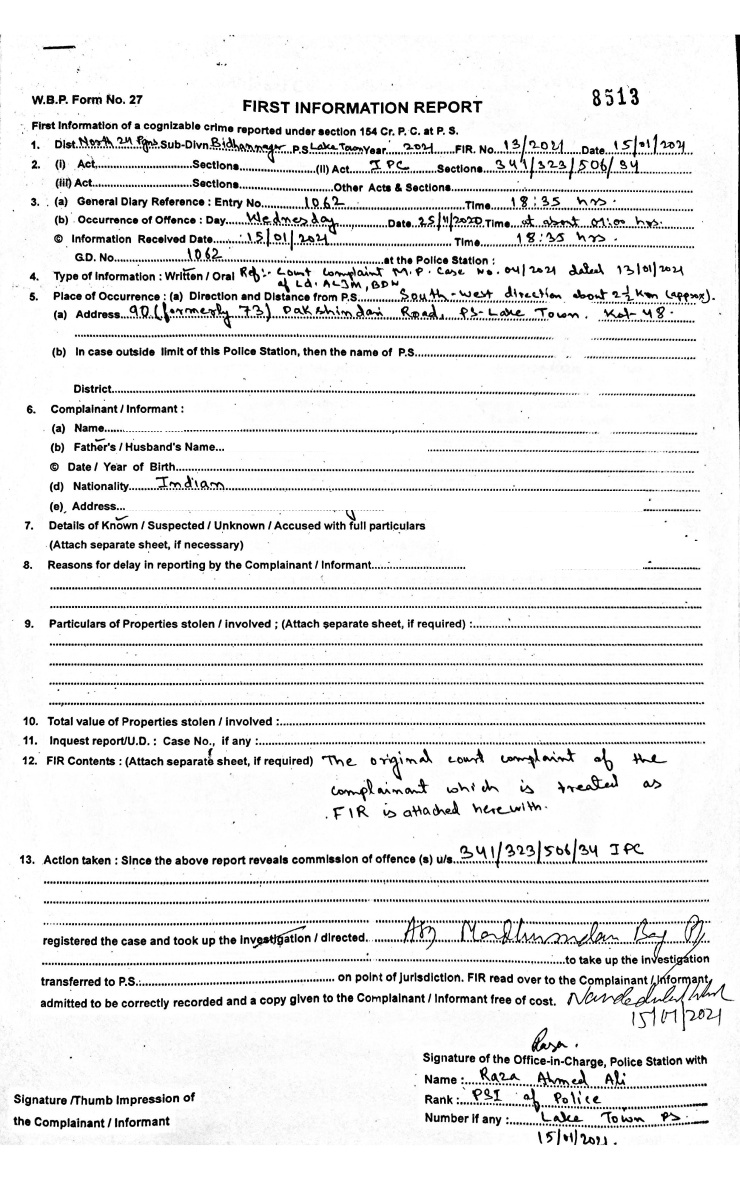 W.B.P. Form No. 27
8513
FIRST INFORMATION REPORT
First Information of a cognizable crime reported under section 154 Cr. P. C. at P. S.
1. Dist. North 24 Pgns Sub-Divn. Bidhannagar P.S. Lake Town Year. 2021 FIR. No. 13/2021 Date 15/01/2021
2. (i) Act Sections (ii) Act. IPC Sections 341/323/506/34
(iii) Act Sections Other Acts & Sections
3. (a) General Diary Reference : Entry No. 1062 Time 18:35 hrs
(b) Occurrence of Offence : Day Wednesday Date 25/11/2020 Time at about 01:00 hrs.
© Information Received Date 15/01/2021 Time 18:35 hrs.
G.D. No. 1062 at the Police Station :
4. Type of Information : Written / Oral Ref:- Court complaint M.P. Case No. 04/2021 dated 13/01/2021
of Ld. ACJM, BDN
5. Place of Occurrence : (a) Direction and Distance from P.S. South-west direction about 2½ Km (approx).
(a) Address 90 (formerly 73) Dakshindari Road, PS- Lake Town. Kol-48.
(b) In case outside limit of this Police Station, then the name of P.S.
District
6. Complainant / Informant :
(a) Name
(b) Father's / Husband's Name...
© Date / Year of Birth
(d) Nationality Indian
(e) Address...
7. Details of Known / Suspected / Unknown / Accused with full particulars
(Attach separate sheet, if necessary)
8. Reasons for delay in reporting by the Complainant / Informant
9. Particulars of Properties stolen / involved ; (Attach separate sheet, if required) :
10. Total value of Properties stolen / involved :
11. Inquest report/U.D. : Case No., if any :
12. FIR Contents : (Attach separate sheet, if required) The original court complaint of the
complainant which is treated as
FIR is attached herewith.
13. Action taken : Since the above report reveals commission of offence (s) u/s. 341/323/506/34 IPC
registered the case and took up the investigation / directed. ASI Madhusudan Bag
to take up the investigation
transferred to P.S. on point of jurisdiction. FIR read over to the Complainant / Informant,
admitted to be correctly recorded and a copy given to the Complainant / Informant free of cost.
15/01/2021
Raza.
Signature of the Office-in-Charge, Police Station with
Name : Raza Ahmed Ali
Rank : PSI of Police
Number if any : Lake Town PS
15/01/2021.
Signature /Thumb Impression of
the Complainant / Informant